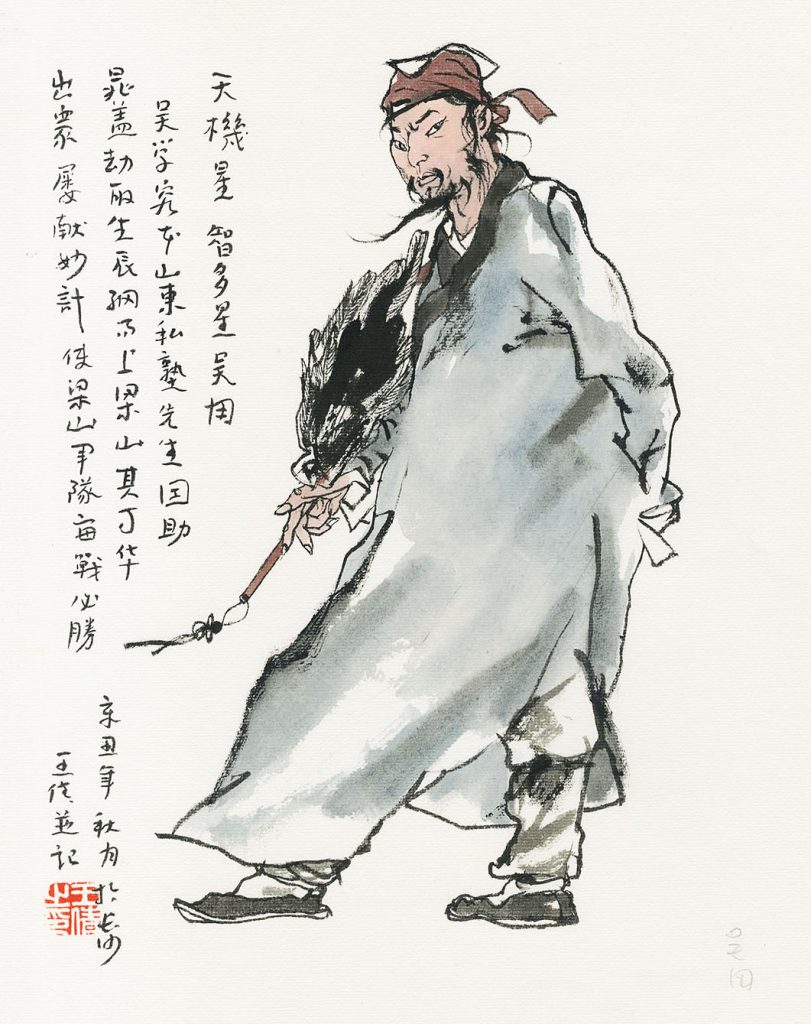 天機星 智多星吴用
吴学究本山東私塾先生因助
晁盖劫取生辰纲而上梁山其才华
出衆屡献妙計使梁山军隊每戰必勝
辛丑年秋月於长沙
王並记
吴用